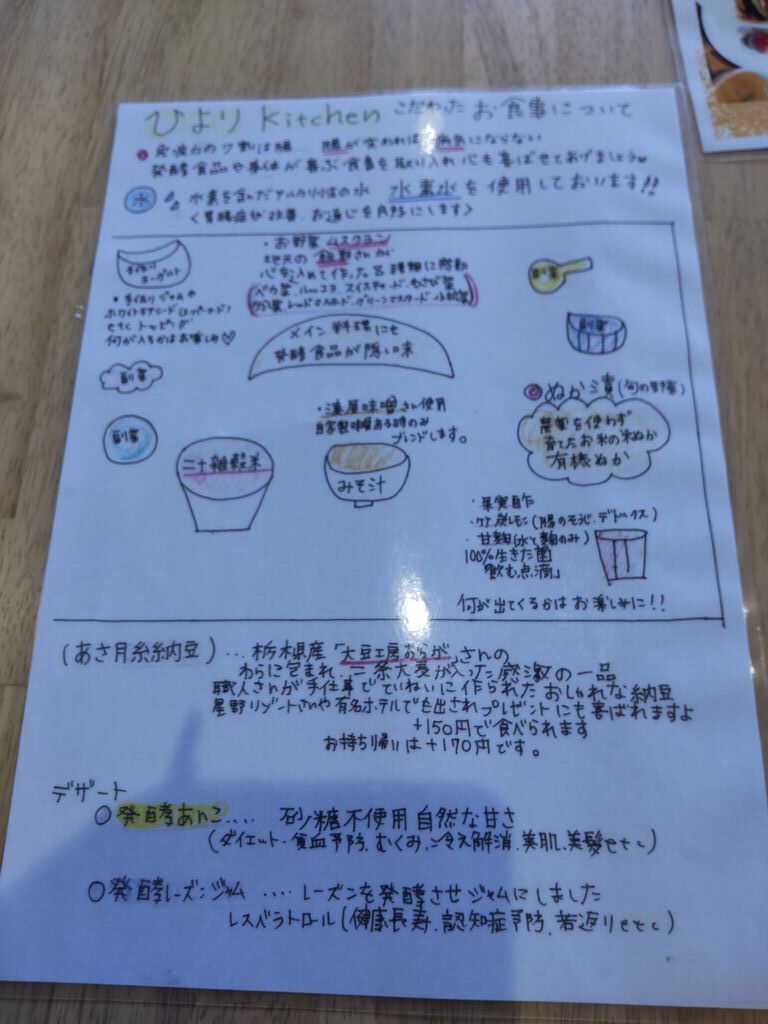 ひより Kitchen こだわった お食事について
免疫力の7割は腸... 腸が整われば 病気にならない
発酵食品や身体が喜ぶ食事を取り入れ心も喜ばせてあげましょう♡
水 水素を含んだアルカリ性の水 水素水を使用しております!!
<胃腸症状改善、お通じを良好にします>
手作りヨーグルト
・手作りジャムや
ホワイトチアシード(スーパーフード)
etc トッピング
何が入るかはお楽しみ♡
・お野菜
地元の飯野さんが
心を込めて作った8種類に感動
(ベカ菜、ルッコラ、スイスチャード、わさび菜
レッドマスタード、グリーンマスタード、小松菜)
メイン料理にも
発酵食品が隠し味
副菜
副菜
副菜
副菜
ぬか漬(旬の野菜)
農薬を使わず
育てたお米の米ぬか
有機ぬか
・湊屋味噌さん使用
自家製味噌ある時のみ
ブレンドします。
みそ汁
二十雑穀米
・果実酢
・竹炭レモン(腸のそうじ、デトックス)
・甘麹(水と麹のみ)
100%生きた菌
「飲む点滴」
何が出てくるかはお楽しみに!!
(あさ月糸納豆)... 栃木県産「大豆工房おらが」さんの
わらに包まれ、二条大麦が入った感激の一品
職人さんが手仕事でていねいに作られたおしゃれな納豆
星野リゾートさんや有名ホテルでも出されプレゼントにも喜ばれますよ
+150円で食べられます
お持ち帰りは+170円です。
デザート
○発酵あんこ.... 砂糖不使用 自然な甘さ
(ダイエット・貧血予防、むくみ、冷え解消、美肌、美髪etc)
○発酵レーズンジャム .... レーズンを発酵させジャムにしました
レスベラトロール(健康長寿、認知症予防、若返りetc)